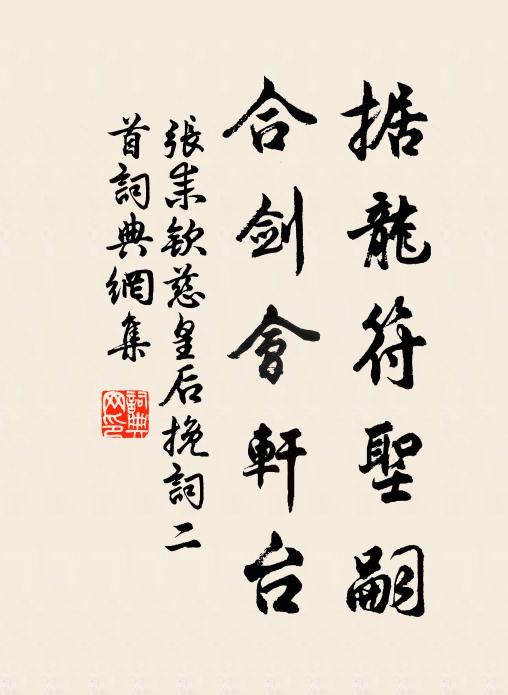 据龍符聖嗣
合剑會軒台
張耒欽慈皇后挽詞二
首詞典網集
詞典
网印